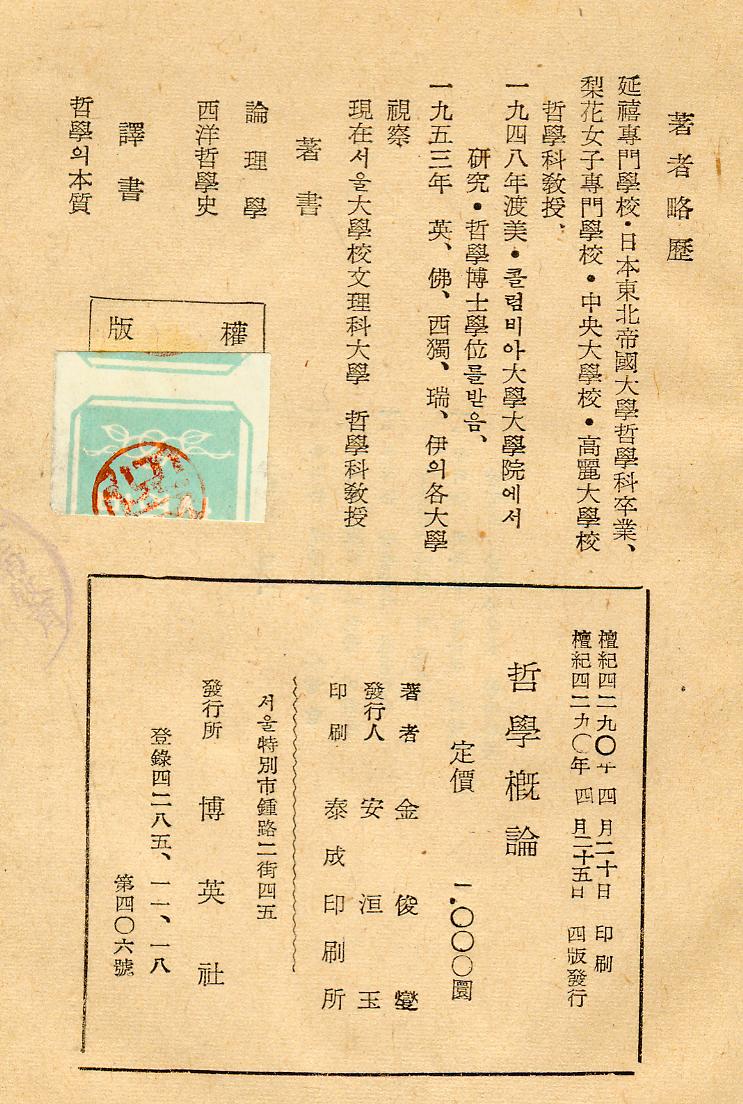 著者略歷
延禧專門學校・日本東北帝國大學哲學科卒業、
梨花女子專門學校・中央大學校・高麗大學校
哲學科敎授、
一九四八年渡美・콜럼비아大學大學院에서
硏究・哲學博士學位를받음、
一九五三年 英、佛、西獨、瑞、伊의各大學
視察
現在서울大學校文理科大學 哲學科敎授
著書
論理學
西洋哲學史
譯書
哲學의本質
版權
檀紀四二九〇年 四月二十日 印刷
檀紀四二九〇年 四月二十五日 四版發行
哲學槪論
定價 一、〇〇〇圜
著者 金俊燮
發行人 安洹玉
印刷 泰成印刷所
서울特別市鍾路二街四五
發行所 博英社
登錄四二八五、一一、一八
第四〇六號